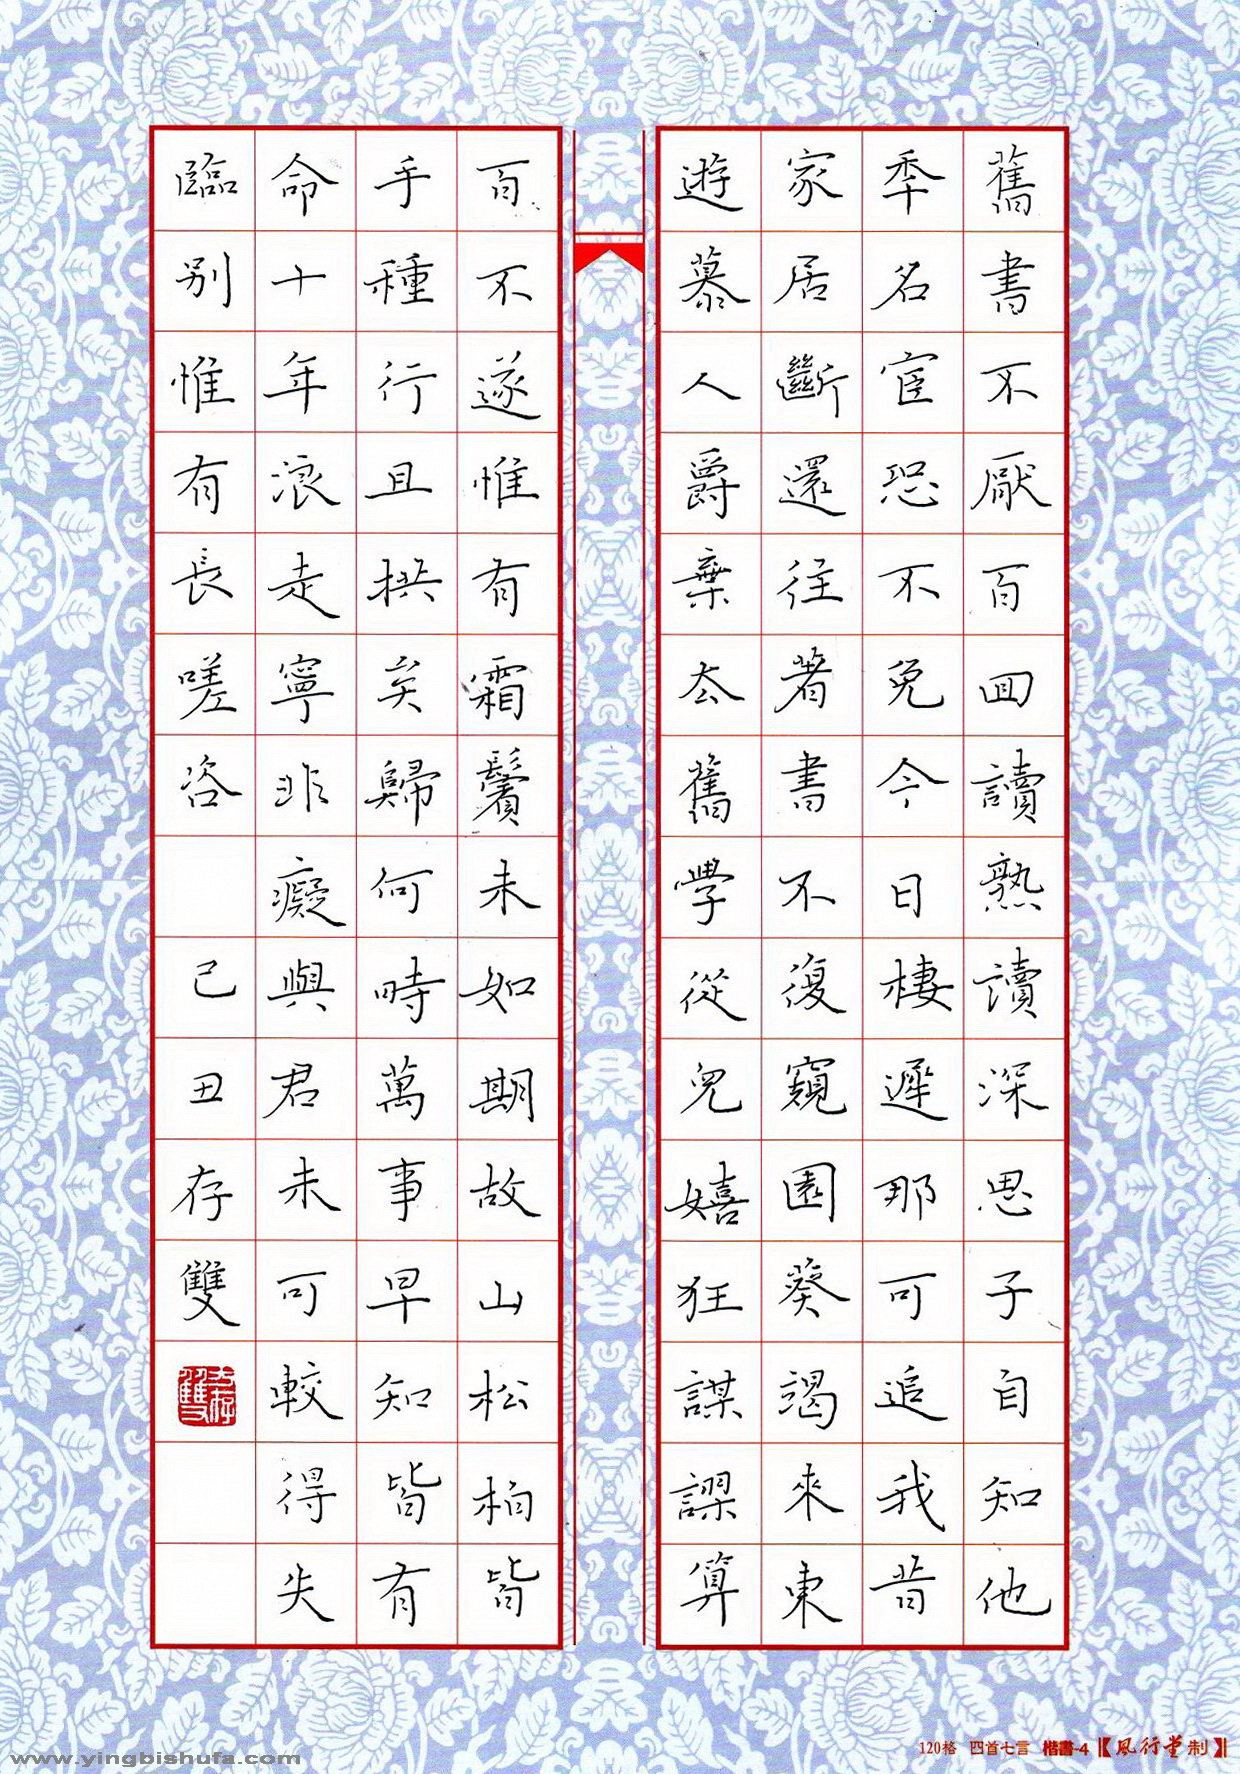 舊書不厭百囬讀熟讀深思子自知他
秊名宦恐不免今日棲遲那可追我昔
家居斷還往著書不復窺園葵竭來東
遊慕人爵棄去舊學從兒嬉狂謀謬算
百不遂惟有霜鬢未如期故山松柏皆
手種行且拱矣歸何時萬事早知皆有
命十年浪走寧非癡與君未可較得失
臨別惟有長嗟咨 己丑存雙
120格 四首七言 楷書-4【風行堂制】
www.yingbishufa.com